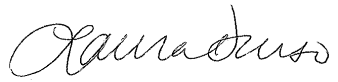 Laura Durso